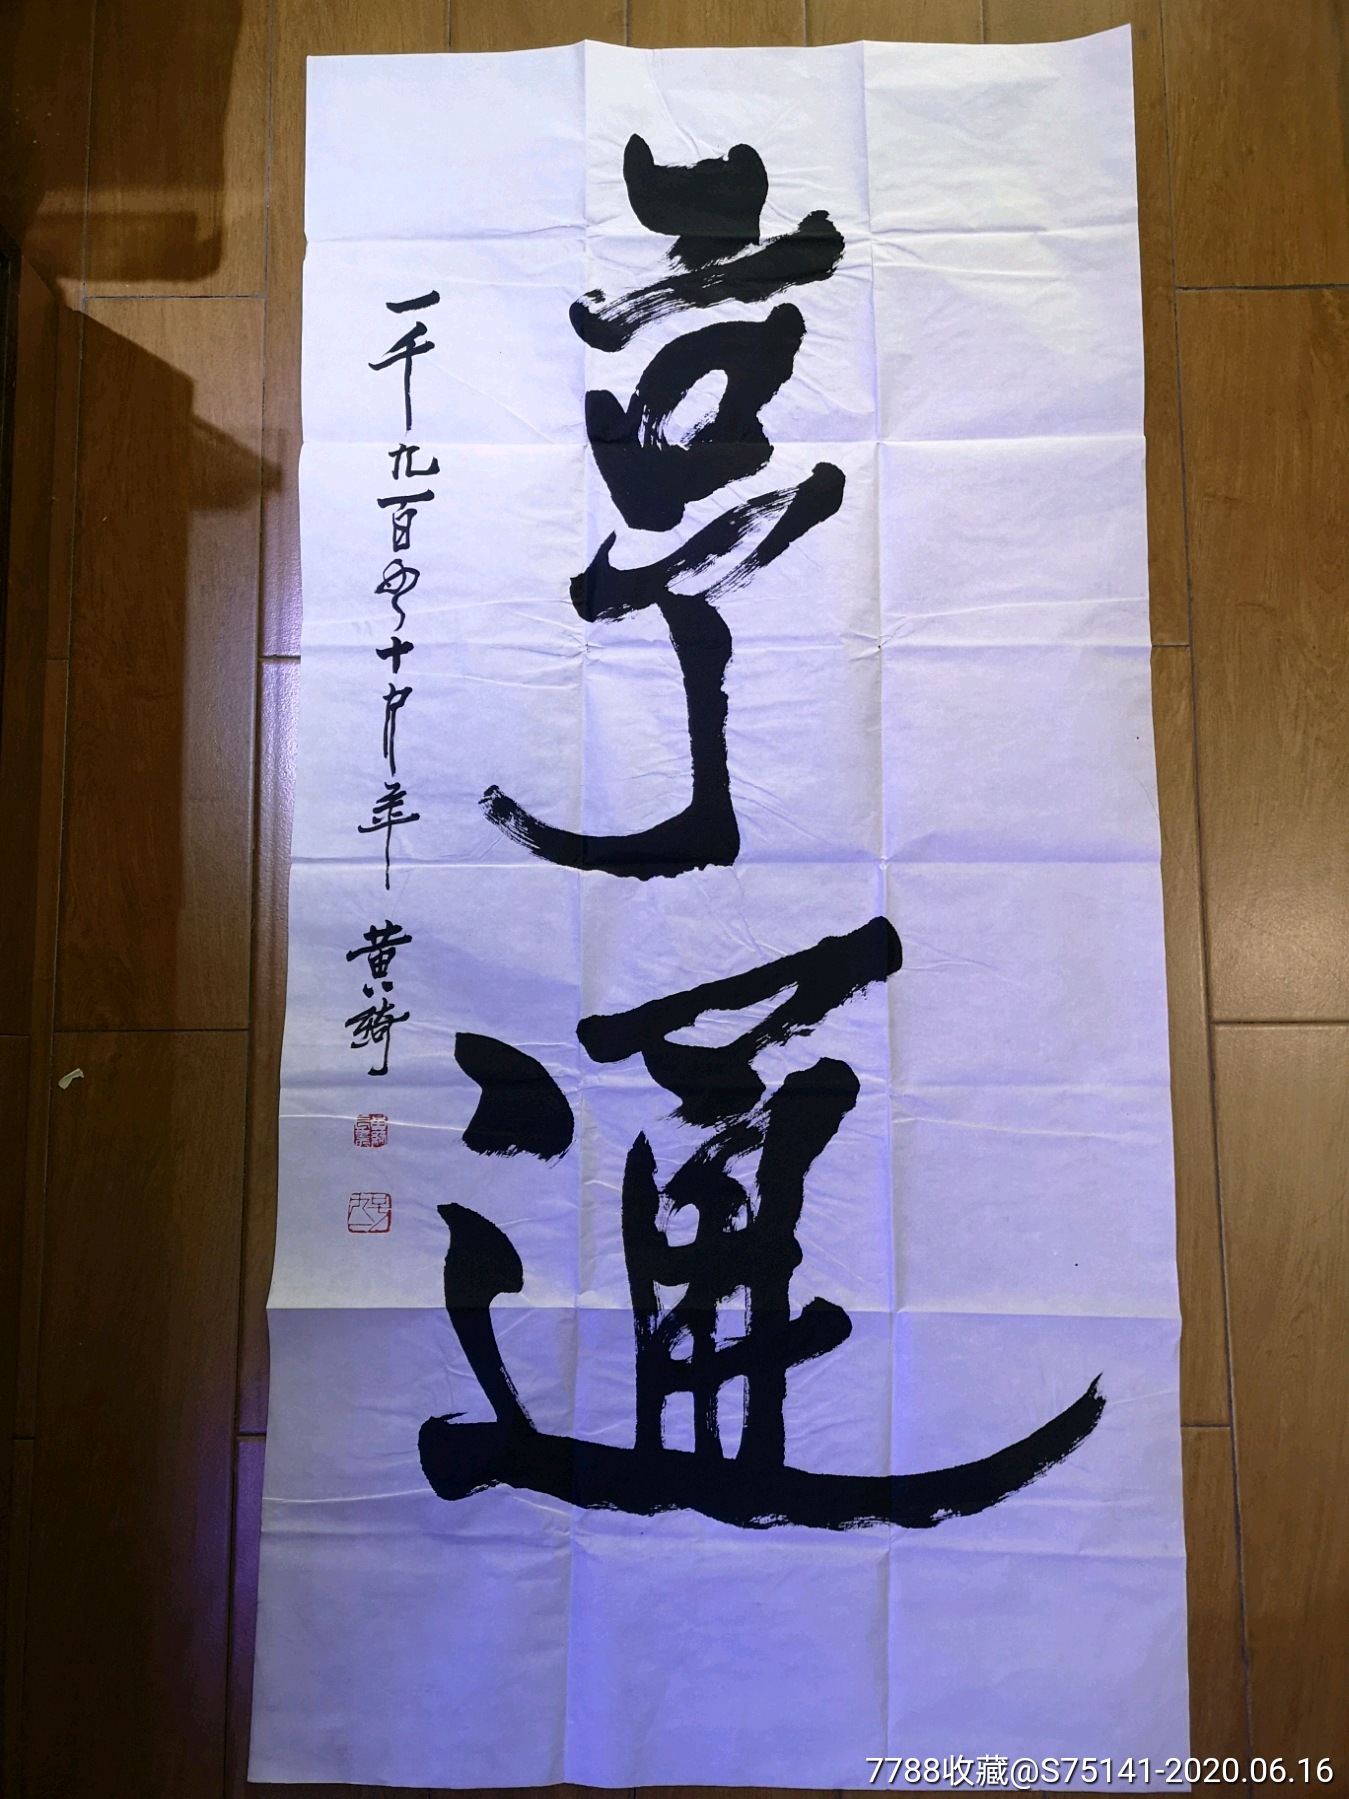 亨通
一千九百十年 黄綺
7788收藏@S75141-2020.06.16